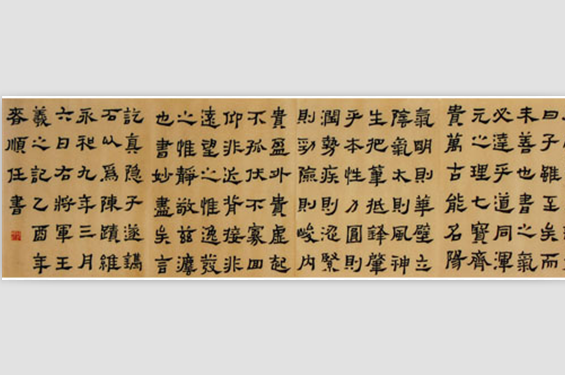 曰子雖至矣而
未善也書之氣
必達乎道同渾
元之理七寶齊
貴萬古能名陽
氣明則華壁立
陰氣太則風神
生把筆抵鋒肇
乎本性力圓則
潤勢疾則澀緊
則勁險則峻內
貴盈外貴虛起
不孤伏不寡回
仰非近背接非
遠望之惟逸發
之惟靜敬茲灋
也書妙盡矣言
訖真隱子遂鐫
石以爲陳蹟維
永和九年三月
六日右將軍王
羲之記乙酉年
順任書